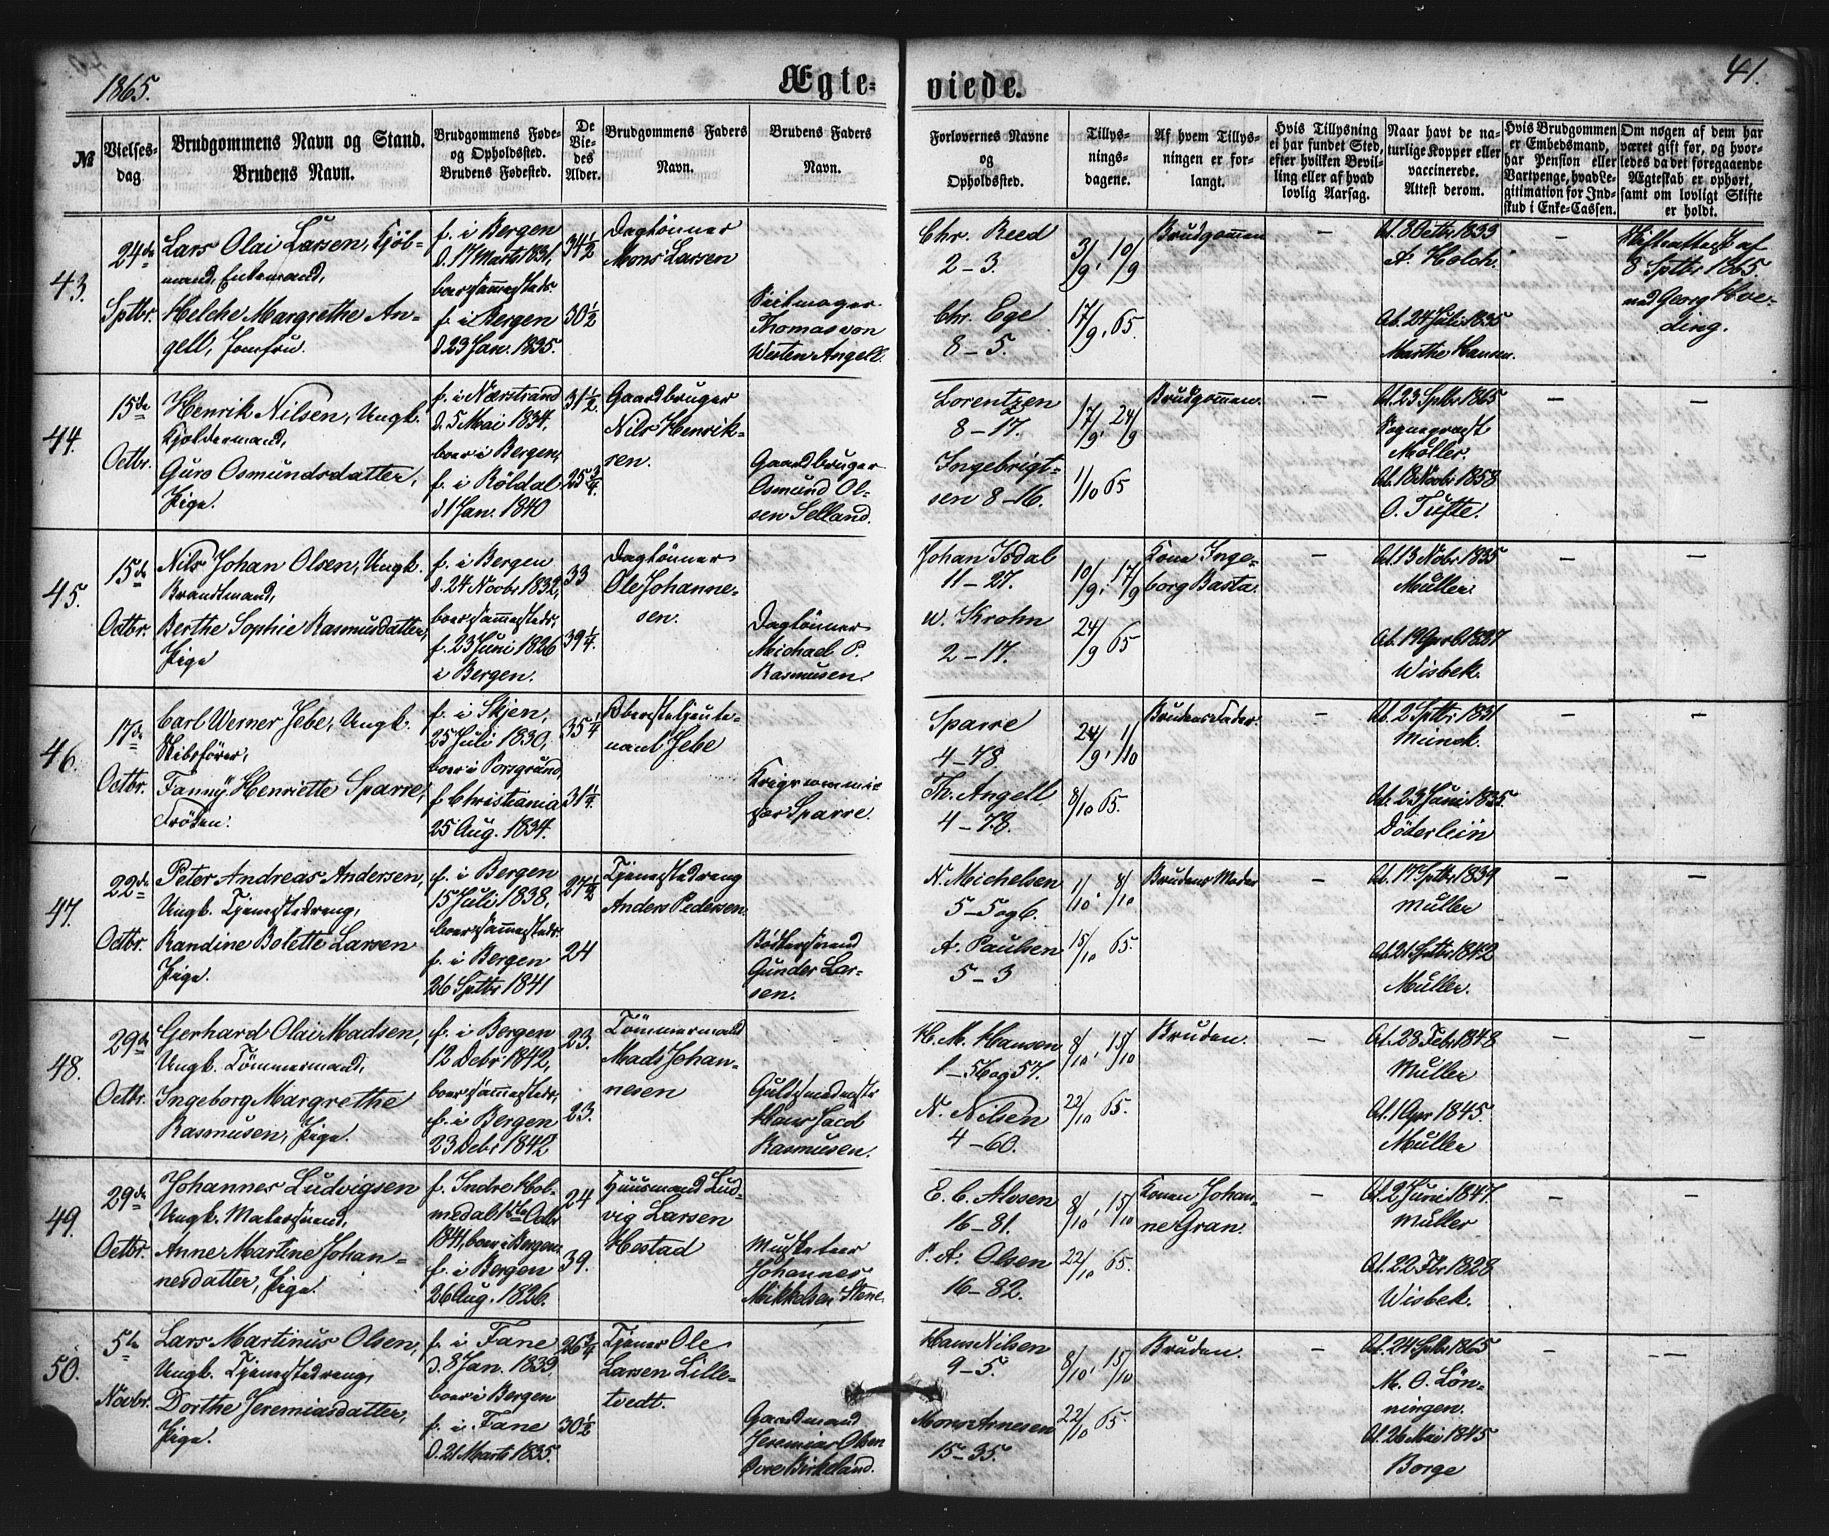 1865.
Ægte-
viede.
41.
№
Vielses-
dag
Brudgommens Navn og Stand.
Brudens Navn.
Brudgommens Føde-
og Opholdssted.
Brudens Fødested.
De
Vie-
des
Alder.
Brudgommens Faders
Navn.
Brudens Faders
Navn.
Forlovernes Navne
og
Opholdssted.
Tillys-
nings-
dagene.
Af hvem Tillys-
ningen er for-
langt.
Hvis Tillysning
ei har fundet Sted,
efter hvilken Bevil-
ling eller af hvad
lovlig Aarsag.
Naar havt de na-
turlige Kopper eller
vaccinerede.
Attest derom.
Hvis Brudgommen
er Embedsmand,
har Pension eller
Vartpenge, hvad Le-
gitimation for Ind-
skud i Enke-Cassen.
Om nogen af dem har
været gift før, og hvor-
ledes da det foregaaende
Ægteskab er ophørt,
samt om lovligt Skifte
er holdt.
43.
24de
Sptbr.
Lars Olai Larsen, Kjöb-
mand, Enkemand,
Helche Margrethe An-
gell, Jomfru.
f. i Bergen
d. 17 Marts 1831,
boer sammesteds.
f. i Bergen
d. 23 Jan. 1835.
34 1/2
30 1/2
Daglönner
Mons Larsen
Thomas von
Westen Angell.
Chr. Reed
2-3.
Chr. Ege
8-5.
3/9, 10/9
17/9, 65.
Brudgommen
-
At. 8 Octbr. 1833
A. Holch.
At. 24 Juli 1835
Marthe Hansen.
-
Skifteattest af
8 Sptbr. 1865.
ved Georg Hve-
ding.
44.
15de
Octbr.
Henrik Nilsen, Ungk.
Kjoldermand,
Guro Osmundsdatter,
Pige.
f. i Nærstrand
d. 5 Mai 1834,
boer i Bergen,
f. i Röldal
d. 1 Jan. 1840
31 1/2.
25 3/4.
Gaardbruger
Nils Henrik-
sen.
Gaardbruger
Osmund Ol-
sen Selland.
Lorentzen
8-17.
Ingebrigt-
sen 8-16.
17/9, 24/9
1/10 65
Brudgommen.
-
At. 23 Sptbr 1865
Sognepræst
Möller.
At. 18 Novbr 1858
O. Tufte.
-
-
45.
15de
Octbr.
Nils Johan Olsen, Ungk.
Brandtmand,
Berthe Sophie Rasmusdatter,
Pige
f. i Bergen
d. 24 Novbr 1832,
boer sammesteds,
f. 23 Juni 1826
i Bergen.
33
39 1/4.
Daglönner
Ole Johanne-
sen.
Daglönner
Michael P.
Rasmusen.
Johan Isdal
11-27.
W. Krohn
2-17.
10/9, 17/9
24/9 65
Kone Inge-
borg Basta.
-
At. 13 Nobr 1835
Müller.
At. 19 April 1837
Wisbek.
-
-
46.
17de
Octbr.
Carl Werner Jebe, Ungk.
Skibsförer,
Fanny Henriette Sparre,
Fröken.
f. i Skjen,
25 Juli 1830,
boer i Porsgrund,
f. Christiania
25 Aug. 1834.
35 1/4
31 1/4.
Oberstelieute-
nant Jebe
Krigscommis-
sær Sparre.
Sparre
4-78.
Th. Angell
4-78.
24/9, 1/10
8/10 65.
Brudens Fader.
-
At. 2 Sptbr 1831
Munck.
At. 23 Juni 1835.
Döderlein
-
-
47.
22de
Octbr.
Peter Andreas Andersen,
Ungk. Tjenestedreng,
Randine Bolette Larsen
Pige.
f. i Bergen
15 Juli 1838,
boer sammesteds.
f. i Bergen
26 Sptbr 1841
27 1/2
24
Tjenestedreng
Anders Pedersen.
Bödkersvend
Gunder Lar-
sen.
N. Michelsen
5-5 og 6.
A. Paulsen
5-3
1/10, 8/10
15/10 65.
Brudens Moder
-
At. 17 Sptbr 1839
Müller
At. 21 Sptbr 1842
Müller.
-
-
48.
29de
Octbr.
Gerhard Olai Madsen,
Ungk. Tömmermand,
Ingeborg Margrethe
Rasmusen, Pige.
f. i Bergen
12 Debr 1842,
boer sammesteds,
f. i Bergen
23 Debr 1842
23.
23.
Tömmermand
Mads Johan-
nesen
Guldsmedmestr
Hans Jacob
Rasmusen.
H. M. Hansen
1-56 og 57.
N. Nilsen
4-60.
8/10, 15/10
22/10 65.
Bruden.
-
At. 28 Feb. 1848
Müller
At. 1 Apr 1845.
Müller
-
-
49.
29de
Octbr.
Johannes Ludvigsen
Ungk. Malersvend,
Anne Martine Johan-
nesdatter, Pige.
f. Indre Hol-
medal 1ste Octbr
1841, boer i Bergen.
f. i Bergen
26 Aug. 1826.
24
39.
Huusmand Lud-
vig Larsen
Hestad
Musketeer
Johannes
Mikkelsen Stene
E. C. Alvsen
16-81.
P. A. Olsen
16-82.
8/10, 15/10
22/10 65.
Konen Johan-
ne Gran.
-
At. 2 Juni 1847.
Müller
At. 22 Fbr. 1828
Wisbek.
-
-
50.
5te
Novbr.
Lars Martinus Olsen,
Ungk. Tjenestedreng,
Dorthe Jeremiasdatter,
Pige.
f. i Fane
d. 8 Jan. 1839,
boer i Bergen
f. i Fane
d. 21 Marts 1835.
26 3/4
30 1/2
Tjener Ole
Larsen Lille-
tvedt.
Gaardmand
Jeremias Olsen
Övre Birkeland.
Hans Nilsen
9-5.
Mons Arnesen
15-35.
8/10, 15/10
22/10 65.
Bruden.
-
At. 24 Sptbr 1865
M. O. Lön-
ningen.
At. 26 Mai 1845
Borge
-
-